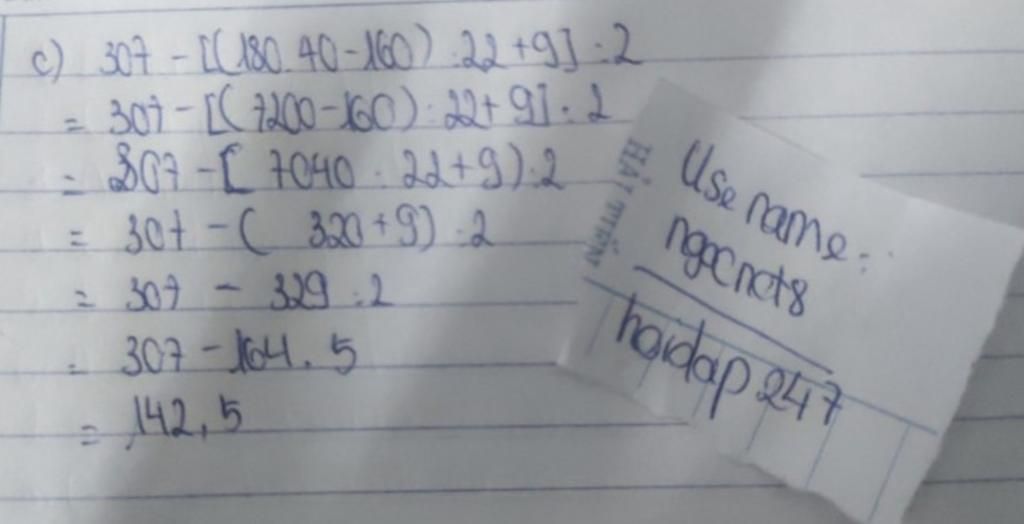 c) 307 - [(180.40-160) : 22 + 9] : 2
= 307 - [(7200-160) : 22+9] : 2
= 307 - [ 7040 : 22+9) : 2
= 307 - ( 320+9) : 2
= 307 - 329 : 2
= 307 - 164.5
= 142,5
HẢI TIẾN
Use name:
ngocnct8
hoidap247